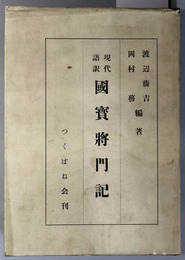 渡辺藤吉
岡村務 編著
現代
語訳
國寶將門記
つくばね会刊